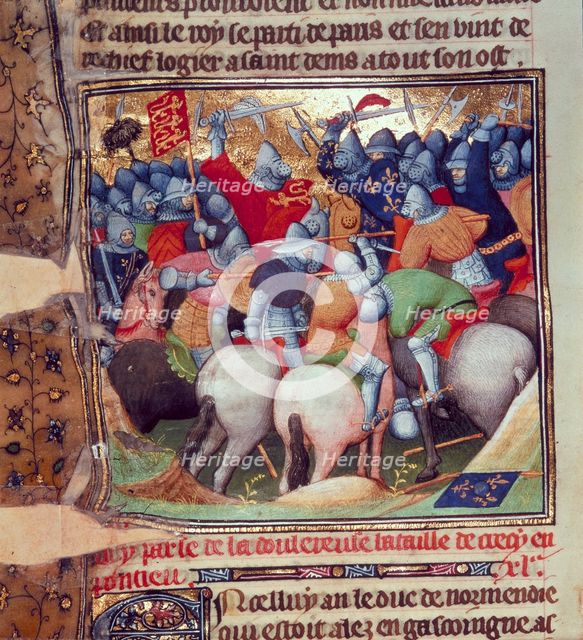 Et ainsi le roy se parti de paris et sen vint de
rechief logier a saint denis a tout son ost.
Heritage Heritage Heritage
Heritage Heritage Heritage
©
Heritage Heritage Heritage
Heritage Heritage Heritage
parle de la doulereuse bataille de crecy en
pontieu. xl.
Ncelluy an le duc de normendie
qui estoit alez en gascoingne ac